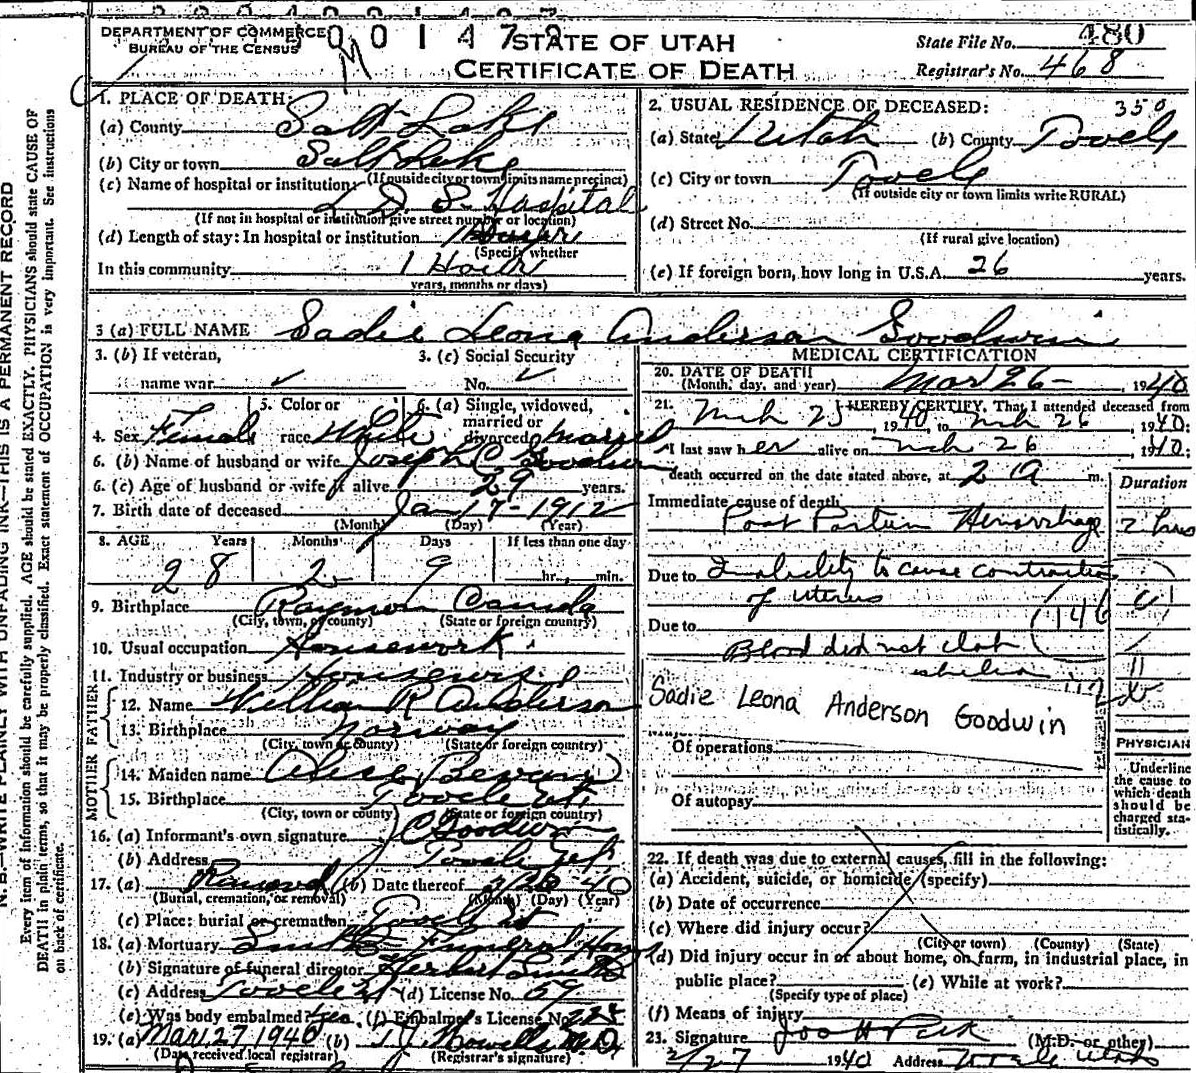 DEPARTMENT OF COMMERCE
BUREAU OF THE CENSUS
STATE OF UTAH
CERTIFICATE OF DEATH
State File No. 480
Registrar's No. 468
1. PLACE OF DEATH:
(a) County Salt Lake
(b) City or town Salt Lake
(If outside city or town limits name precinct)
(c) Name of hospital or institution:
L D S Hospital
(If not in hospital or institution give street number or location)
(d) Length of stay: In hospital or institution 1 Hour
(Specify whether
In this community 1 Hour
years, months or days)
2. USUAL RESIDENCE OF DECEASED: 350
(a) State Utah (b) County Tooele
(c) City or town Tooele
(If outside city or town limits write RURAL)
(d) Street No.
(If rural give location)
(e) If foreign born, how long in U.S.A. 26 years.
3 (a) FULL NAME Sadie Leona Anderson Goodwin
3. (b) If veteran,
name war
3. (c) Social Security
No.
4. Sex Female
5. Color or
race White
6. (a) Single, widowed,
married or
divorced married
6. (b) Name of husband or wife Joseph C Goodwin
6. (c) Age of husband or wife if alive 29 years.
7. Birth date of deceased Jan 17 - 1912
(Month) (Day) (Year)
8. AGE Years Months Days If less than one day
28 2 9 hr. min.
9. Birthplace Raymon Canada
(City, town, or county) (State or foreign country)
10. Usual occupation Housework
11. Industry or business Housewife
FATHER
12. Name William R Anderson
13. Birthplace Norway
(City, town or county) (State or foreign country)
MOTHER
14. Maiden name Alice Bevan
15. Birthplace Tooele Ut
(City, town or county) (State or foreign country)
16. (a) Informant's own signature J C Goodwin
(b) Address Tooele Ut
17. (a) Removal (b) Date thereof 3/28 40
(Burial, cremation, or removal) (Month) (Day) (Year)
(c) Place: burial or cremation Tooele Ut
18. (a) Mortuary Smith Funeral Home
(b) Signature of funeral director Herbert Smith
(c) Address Tooele Ut (d) License No. 59
(e) Was body embalmed? yes (f) Embalmer's License No. 225
19. (a) Mar. 27 1940 (b) T. J. Howells M.D
(Date received local registrar) (Registrar's signature)
MEDICAL CERTIFICATION
20. DATE OF DEATH
(Month, day, and year) Mar 26 - 1940
21. I HEREBY CERTIFY, That I attended deceased from
Mch 25, 1940, to Mch 26, 1940;
I last saw her alive on Mch 26, 1940;
death occurred on the date stated above, at 2 a m.
Duration
Immediate cause of death
Post Partum Hemorrhage 2 hrs
Due to Inability to cause contraction
of uterus
146
Due to
Blood did not clot
Sadie Leona Anderson Goodwin
Of operations
Of autopsy
PHYSICIAN
Underline
the cause to
which death
should be
charged sta-
tistically.
22. If death was due to external causes, fill in the following:
(a) Accident, suicide, or homicide (specify)
(b) Date of occurrence
(c) Where did injury occur?
(City or town) (County) (State)
(d) Did injury occur in or about home, on farm, in industrial place, in
public place? (e) While at work?
(Specify type of place)
(f) Means of injury
23. Signature Jos H Peck (M.D. or other)
3/27 1940 Address Tooele Utah
N. B.—WRITE PLAINLY WITH UNFADING INK—THIS IS A PERMANENT RECORD
Every item of information should be carefully supplied. AGE should be stated EXACTLY. PHYSICIANS should state CAUSE OF
DEATH in plain terms, so that it may be properly classified. Exact statement of OCCUPATION is very important. See instructions
on back of certificate.